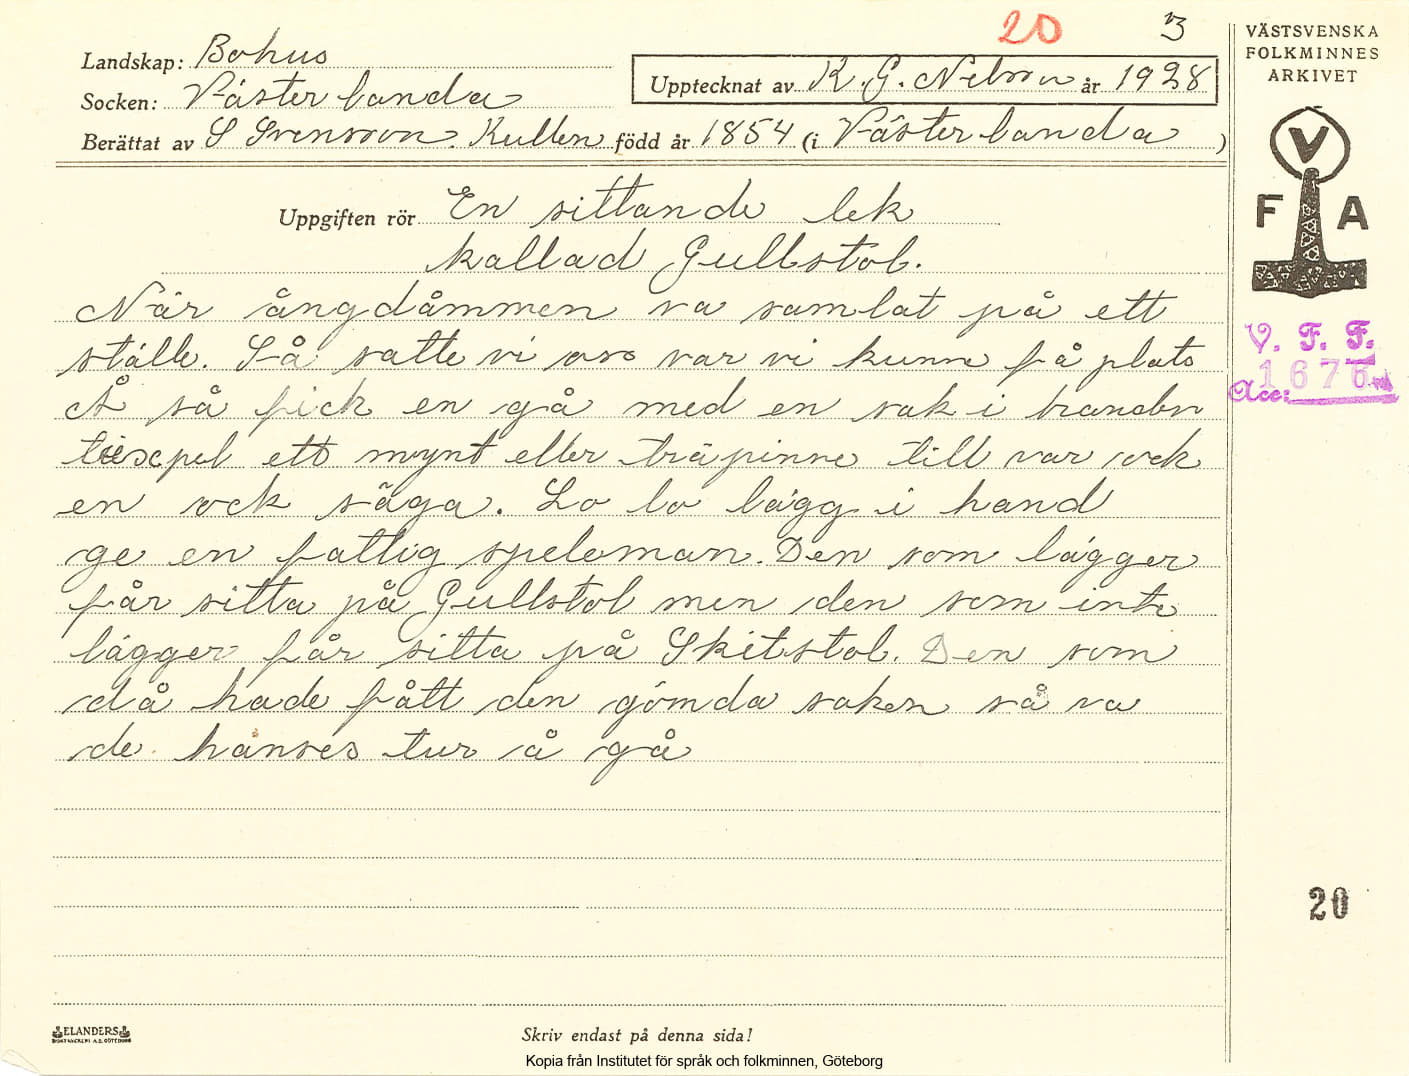 20 3
Landskap: Bohus
Socken: Västerlanda
Upptecknat av K. G. Nelson år 1928
Berättat av S Svensson. Kullen född år 1854 (i Västerlanda )
Uppgiften rör En sittande lek
kallad Gullstol.
När ångdåmmen va samlat på ett
ställe. Så satte vi oss var vi kunne få plats
Å så fick en gå med en sak i handen
tiexpel ett mynt eller träpinne till var ock
en ock säga. Lo lo lägg i hand
ge en fattig speleman. Den som lägger
får sitta på Gullstol men den som inte
lägger får sitta på Skitstol. Den som
då hade fått den gömda saken så va
de hanses tur å gå
VÄSTSVENSKA
FOLKMINNES
ARKIVET
V
F A
V. F. F.
1676
Acc:
20
ELANDERS
Skriv endast på denna sida!
Kopia från Institutet för språk och folkminnen, Göteborg